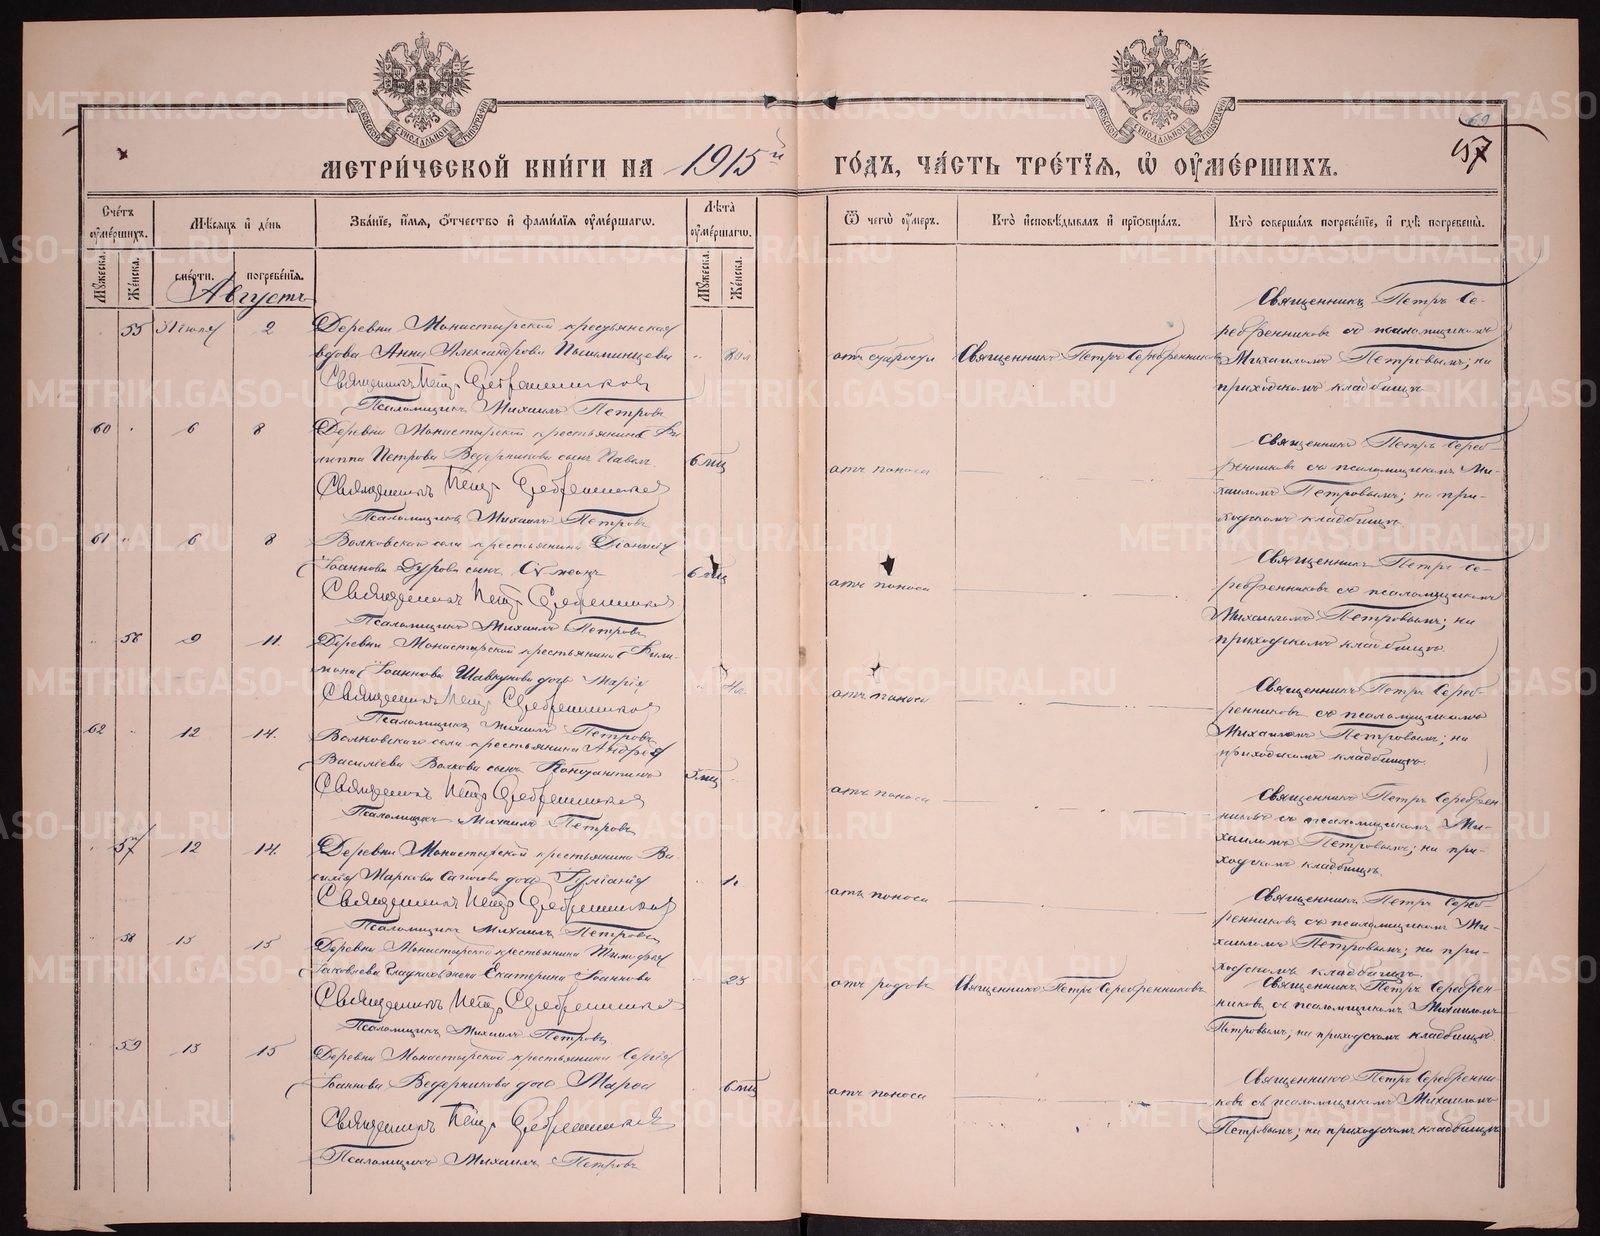 МЕТРИЧЕСКОЙ КНИГИ НА 1915й ГОДЪ, ЧАСТЬ ТРЕТІЯ, Ѡ ОУМЕРШИХЪ.
69
157
Счетъ оумершихъ.
Мѣсяцъ и день
Званіе, имя, отчество и фамилія оумершагѡ.
Лѣта оумершагѡ.
Ѿ чегѡ оумеръ.
Кто исповѣдывалъ и пріобщалъ.
Кто совершалъ погребеніе, и гдѣ погребены.
Мужеска.
Женска.
смерти.
погребенія.
Мужеска.
Женска.
Августъ
55 31 іюля 2
Деревни Монастырской крестьянская
вдова Анна Александрова Пышминцева
80 л
отъ старости
Священникъ Петръ Серебренниковъ
Священникъ Петръ Се-
ребренниковъ съ псаломщикомъ
Михаиломъ Петровымъ; на
приходскомъ кладбищѣ.
Священникъ Петръ Серебренниковъ
Псаломщикъ Михаилъ Петровъ
60 6 8
Деревни Монастырской крестьянина Фи
липпа Петрова Ведерникова сынъ Павелъ
6 мц
отъ поноса
Священникъ Петръ Сереб-
ренниковъ съ псаломщикомъ Ми-
хаиломъ Петровымъ; на при-
ходскомъ кладбищѣ.
Священникъ Петръ Серебренниковъ
Псаломщикъ Михаилъ Петровъ
61 6 8
Волковскаго села крестьянина Діонисія
Іоаннова Дурова сынъ Сѵмеонъ
6 мц
отъ поноса
Священникъ Петръ Се-
ребренниковъ съ псаломщикомъ
Михаиломъ Петровымъ; на
приходскомъ кладбищѣ.
Священникъ Петръ Серебренниковъ
Псаломщикъ Михаилъ Петровъ
56 9 11.
Деревни Монастырской крестьянина Фили-
мона Іоаннова Шавкунова дочь Марія
отъ поноса
Священникъ Петръ Сереб-
ренниковъ съ псаломщикомъ
Михаиломъ Петровымъ; на
приходскомъ кладбищѣ.
Священникъ Петръ Серебренниковъ
Псаломщикъ Михаилъ Петровъ
62 12 14.
Волковскаго села крестьянина Андрея
Василіева Волкова сынъ Константинъ
5 мц
отъ поноса
Священникъ Петръ Серебрен-
никовъ съ псаломщикомъ Ми-
хаиломъ Петровымъ; на при-
ходскомъ кладбищѣ.
Священникъ Петръ Серебренниковъ
Псаломщикъ Михаилъ Петровъ
57 12 14.
Деревни Монастырской крестьянина Ва
силія Маркова Сапогова дочь Іуліанія
1.
отъ поноса
Священникъ Петръ Сереб-
ренниковъ съ псаломщикомъ Ми-
хаиломъ Петровымъ; на при-
ходскомъ кладбищѣ.
Священникъ Петръ Серебренниковъ
Псаломщикъ Михаилъ Петровъ
58 13 15
Деревни Монастырской крестьянина Тимофея
Іаковлева Гладкихъ жена Екатерина Іоаннова
23
отъ родовъ
Священникъ Петръ Серебренниковъ
Священникъ Петръ Серебрен-
никовъ съ псаломщикомъ Михаиломъ
Петровымъ; на приходскомъ кладбищѣ.
Священникъ Петръ Серебренниковъ
Псаломщикъ Михаилъ Петровъ
59 13 15
Деревни Монастырской крестьянина Сергія
Іоаннова Ведерникова дочь Марѳа
6 мц
отъ поноса
Священникъ Петръ Серебренни
ковъ съ псаломщикомъ Михаиломъ
Петровымъ; на приходскомъ кладбищѣ
Священникъ Петръ Серебренниковъ
Псаломщикъ Михаилъ Петровъ
METRIKI.GASO-URAL.RU